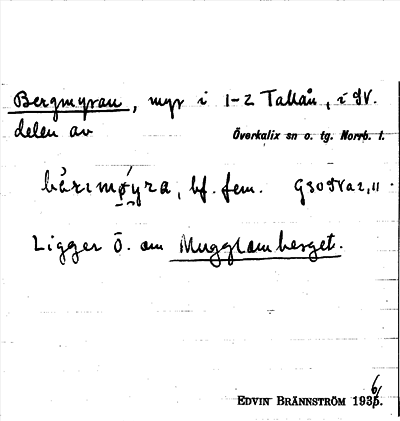 Bergmyran, myr i 1-2 Tallån, i SV.
delen av
Överkalix sn o. tg. Norrb. l.
bf. fem.
Ligger Ö. om Mugglamberget.
EDVIN BRÄNNSTRÖM 1936.